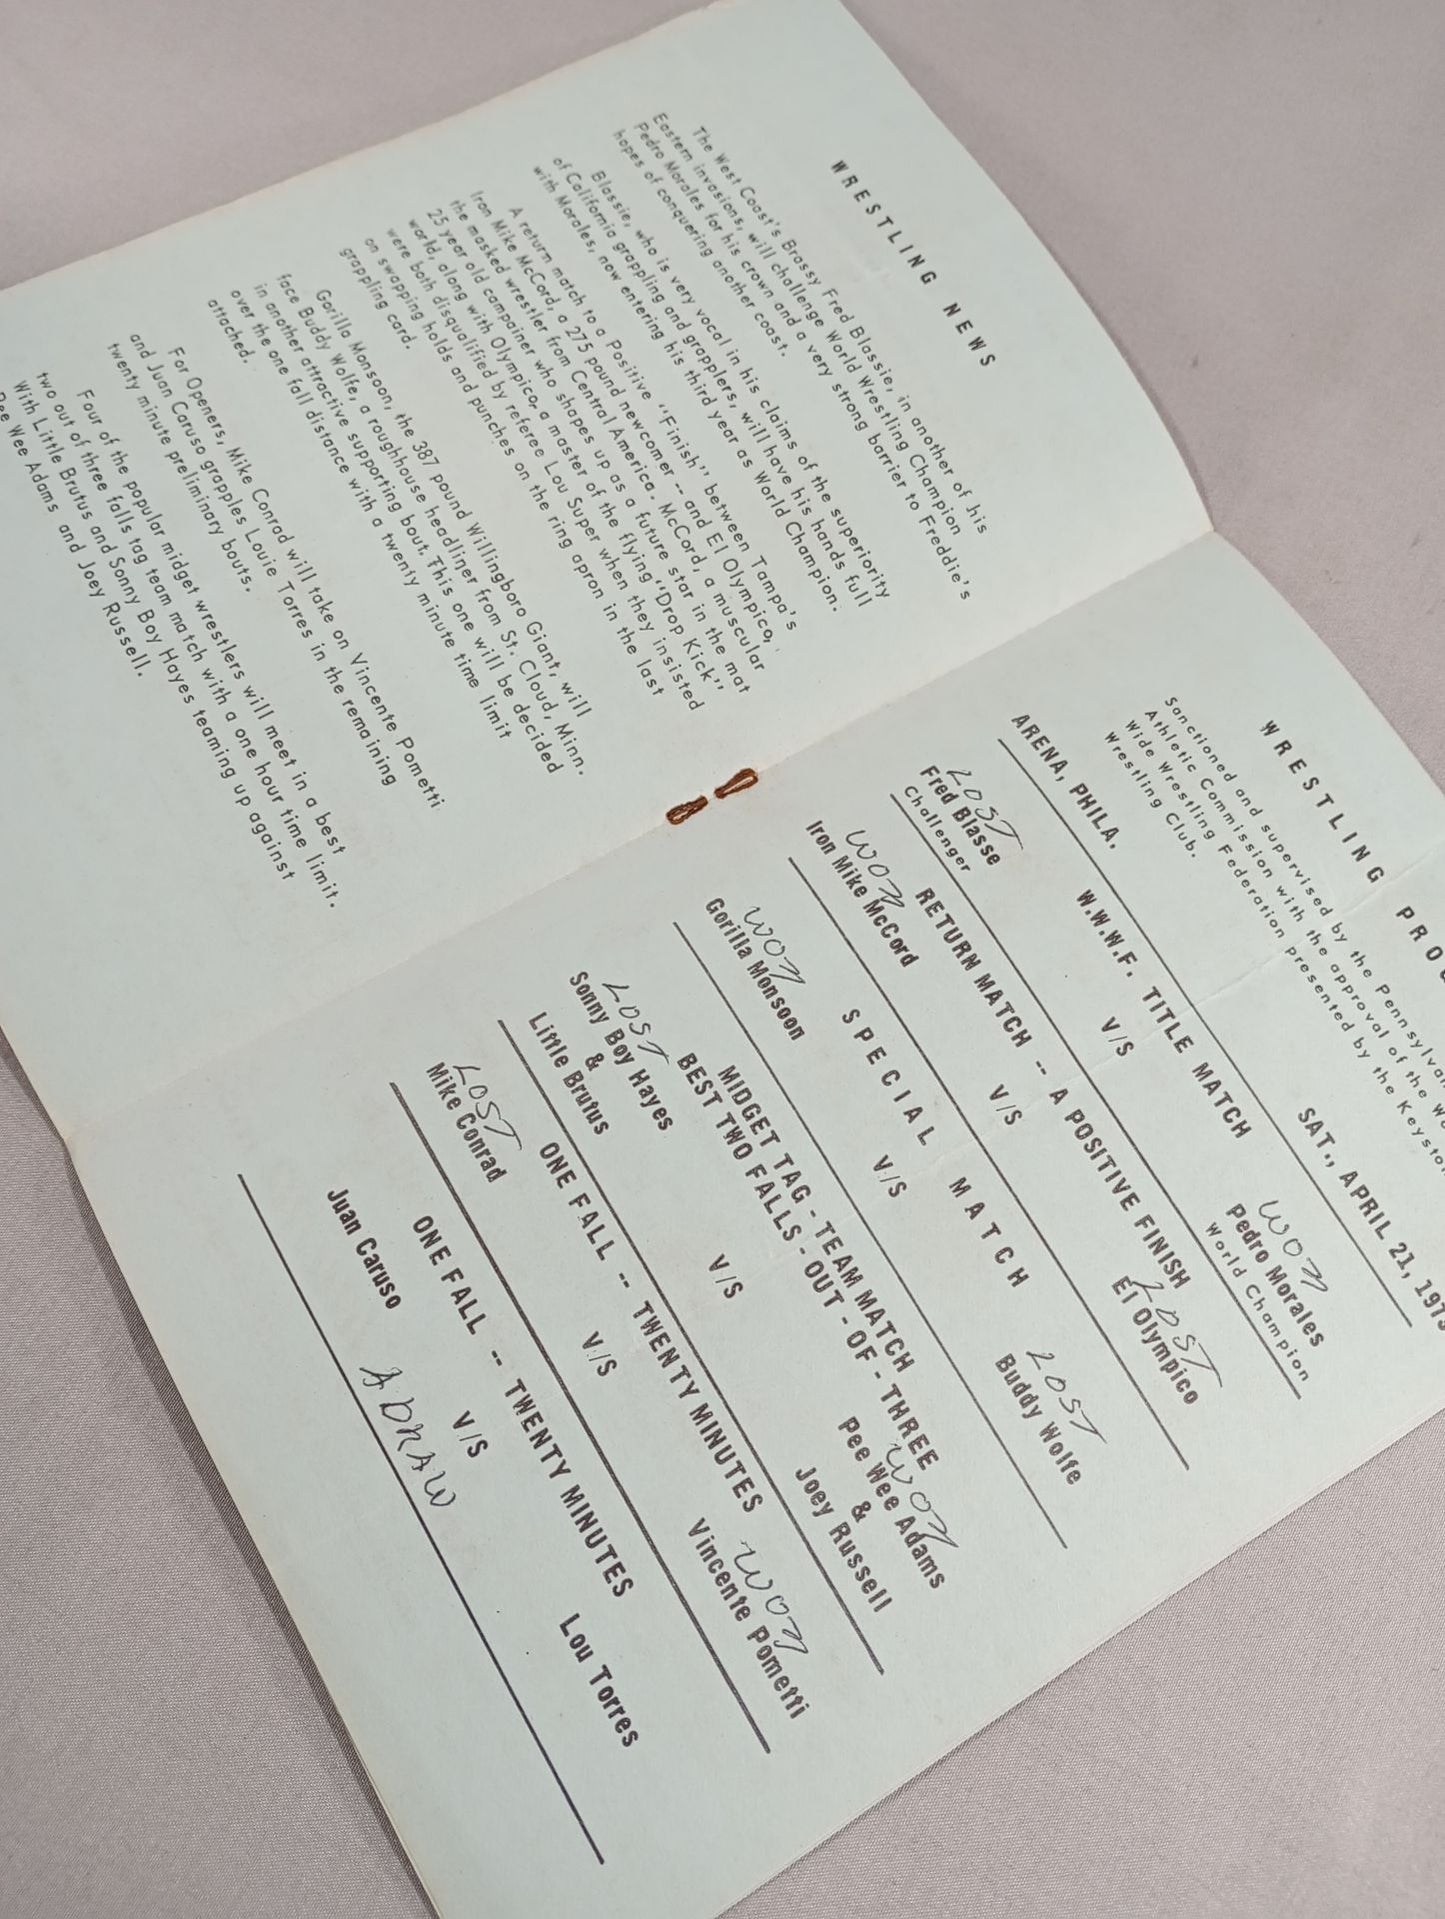 WRESTLING NEWS
The West Coast's Brassy Fred Blassie, in another of his
Eastern invasions, will challenge World Wrestling Champion
Pedro Morales for his crown and a very strong barrier to Freddie's
hopes of conquering another coast.
Blassie, who is very vocal in his claims of the superiority
of California grappling and grapplers, will have his hands full
with Morales, now entering his third year as World Champion.
A return match to a Positive "Finish" between Tampa's
Iron Mike McCord, a 275 pound newcomer -- and El Olympico,
the masked wrestler from Central America. McCord, a muscular
25 year old campainer who shapes up as a future star in the mat
world, along with Olympico, a master of the flying "Drop Kick"
were both disqualified by referee Lou Super when they insisted
on swapping holds and punches on the ring apron in the last
grappling card.
Gorilla Monsoon, the 387 pound Willingboro Giant, will
face Buddy Wolfe, a roughhouse headliner from St. Cloud, Minn.
in another attractive supporting bout. This one will be decided
over the one fall distance with a twenty minute time limit
attached.
For Openers, Mike Conrad will take on Vincente Pometti
and Juan Caruso grapples Louie Torres in the remaining
twenty minute preliminary bouts.
Four of the popular midget wrestlers will meet in a best
two out of three falls tag team match with a one hour time limit.
With Little Brutus and Sonny Boy Hayes teaming up against
Pee Wee Adams and Joey Russell.
WRESTLING
Sanctioned and supervised by the
Athletic Commission with the approval of the
Wide Wrestling Federation presented by the
Wrestling Club.
ARENA, PHILA. SAT., APRIL 21,
W.W.W.F. TITLE MATCH
LOST WON
Fred Blasse V/S Pedro Morales
Challenger World Champion
RETURN MATCH -- A POSITIVE FINISH
WON LOST
Iron Mike McCord V/S El Olympico
SPECIAL MATCH
WON LOST
Gorilla Monsoon V/S Buddy Wolfe
MIDGET TAG - TEAM MATCH
BEST TWO FALLS - OUT - OF - THREE
LOST WON
Sonny Boy Hayes Pee Wee Adams
& V/S &
Little Brutus Joey Russell
ONE FALL -- TWENTY MINUTES
LOST WON
Mike Conrad V/S Vincente Pometti
ONE FALL -- TWENTY MINUTES
Juan Caruso V/S Lou Torres
A DRAW